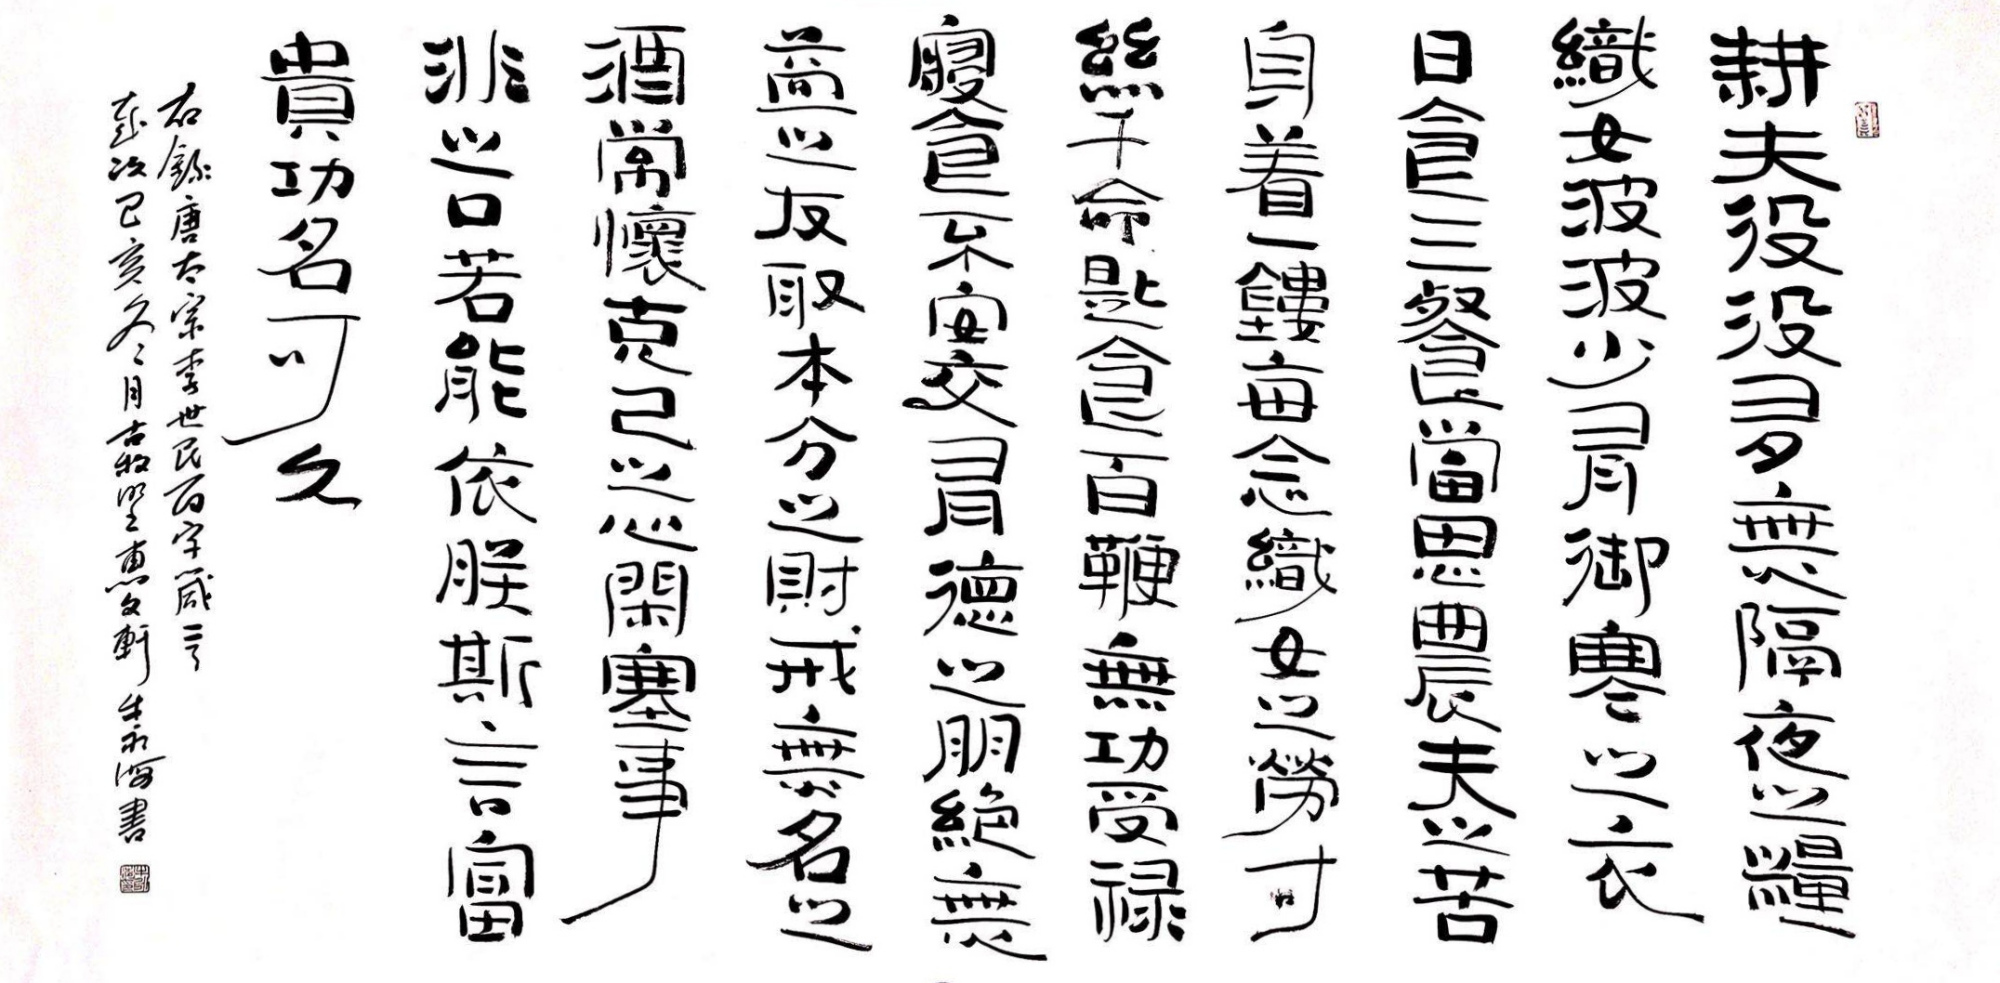 耕夫役役多無隔夜之糧
織女波波少有御寒之衣
日食三餐當思農夫之苦
身着一縷每念織女之勞寸
絲千命匙食百鞭無功受祿
寢食不安交有德之朋絕無
益之友取本分之財戒無名之
酒常懷克己之心閑塞事
非之口若能依朕斯言富
貴功名可久
右錄唐太宗李世民百字箴言
歲次己亥冬月古牧野惠文軒 牛永海書